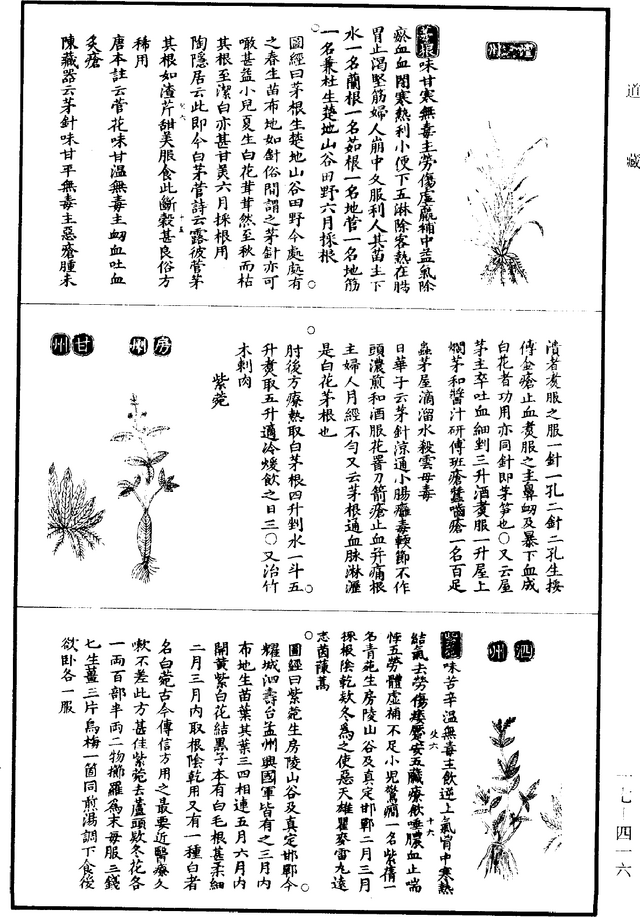 道藏
澶州
茅根味甘寒無毒主勞傷虛羸補中益氣除
瘀血血閉寒熱利小便下五淋除客熱在腸
胃止渴堅筋婦人崩中久服利人其苗主下
水一名蘭根一名茹根一名地菅一名地筋
一名兼杜生楚地山谷田野六月採根
圖經曰茅根生楚地山谷田野今處處有
之春生苗布地如針俗間謂之茅針亦可
噉甚益小兒夏生白花茸茸然至秋而枯
其根至潔白亦甚甘美六月採根用
陶隱居云此即今白茅菅詩云露彼菅茅
其根如渣芹甜美服食此斷穀甚良俗方
稀用
唐本註云菅花味甘溫無毒主衂血吐血
灸瘡
陳藏器云茅針味甘平無毒主惡瘡腫未
潰者煑服之服一針一孔二針二孔生挼
傅金瘡止血煑服之主鼻衂及暴下血成
白花者功用亦同針即茅笋也○又云屋
茅主卒吐血細剉三升酒煑服一升屋上
爛茅和醬汁研傅斑瘡蠶嚙瘡一名百足
蟲茅屋滴溜水殺雲母毒
日華子云茅針涼通小腸癰毒軟節不作
頭濃煎和酒服花罯刀箭瘡止血并痛根
主婦人月經不勻又云茅根通血脉淋瀝
是白花茅根也
肘後方療熱取白茅根四升剉水一斗五
升煑取五升適冷煖飲之日三○又治竹
木刺肉
紫菀
房州
甘州
泗州
紫菀味苦辛溫無毒主欬逆上氣胷中寒熱
結氣去蠱毒痿蹶安五臟療欬唾膿血止喘
悸五勞體虛補不足小兒驚癇一名紫蒨一
名青菀生房陵山谷及真定邯鄲二月三月
採根陰乾欵冬爲之使惡天雄瞿麥雷丸遠
志茵蔯蒿
圖經曰紫菀生房陵山谷及真定邯鄲今
耀城泗壽台孟州興國軍皆有之三月内
布地生苗葉其葉三四相連五月六月内
開黄紫白花結黒子本有白毛根甚柔細
二月三月内取根陰乾用又有一種白者
名白菀古今傳信方用之最要近醫療久
嗽不差此方甚佳紫菀去蘆頭欵冬花各
一兩百部半兩三物擣羅爲末每服三錢
匕生薑三片烏梅一箇同煎湯調下食後
欲卧各一服
一七—四一六